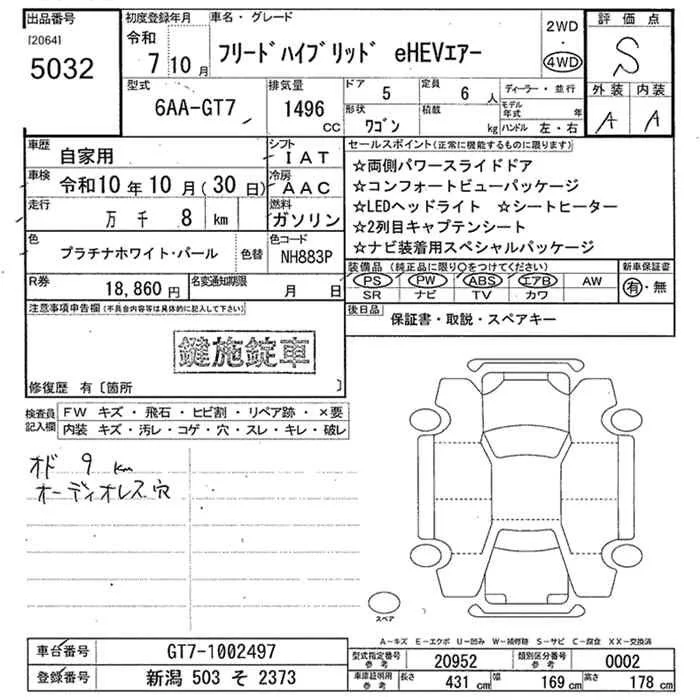 出品番号
[2064]
5032
初度登録年月
令和
7年 10月
車名・グレード
フリードハイブリッド eHEVエアー
2WD
・
4WD
評価点
S
外装 内装
A A
型式
6AA-GT7
排気量
1496
CC
ドア
5
定員
6 人
形状
ワゴン
積載
kg
ディーラー・並行
モデル年式 年
ハンドル 左・右
車歴
自家用
シフト
IAT
車検
令和10年10月(30日)
冷房
AAC
走行
万 千 8 km
燃料
ガソリン
色
プラチナホワイト・パール
色替
色コード
NH883P
R券
18,860円
名変通知期限
月 日
セールスポイント(正常に機能するものに限ります)
☆両側パワースライドドア
☆コンフォートビューパッケージ
☆LEDヘッドライト ☆シートヒーター
☆2列目キャプテンシート
☆ナビ装着用スペシャルパッケージ
装備品(純正品に限り○をつけてください)
PS PW ABS エアB AW
SR ナビ TV カワ
新車保証書
有・無
後日品
保証書・取説・スペアキー
注意事項申告欄(不具合内容等は具体的に記入して下さい)
鍵施錠車
修復歴 有〔箇所 〕
検査員記入欄
FW キズ・飛石・ヒビ割・リペア跡・×要
内装 キズ・汚レ・コゲ・穴・スレ・キレ・破レ
オド 9 km
オーディオレス穴
スペア
A-キズ E-エクボ U-凹み W-補修跡 S-サビ C-腐食 XX-交換済
車台番号
GT7-1002497
登録番号
新潟 503 そ 2373
型式指定番号
参考
20952
類別区分番号
参考
0002
車庫証明用
参考
長さ 431 cm
幅 169 cm
高さ 178 cm